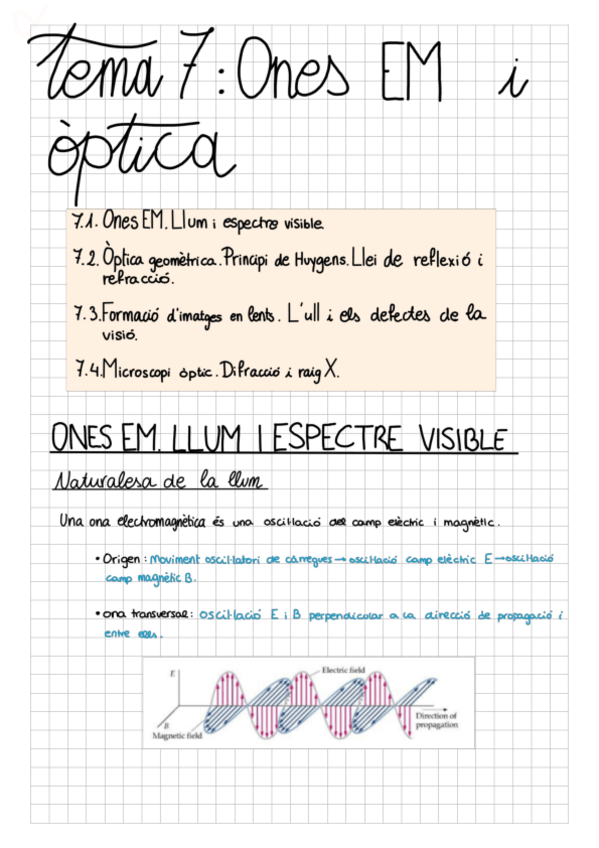 Tema 7: Ones EM i
òptica
7.1. Ones EM. Llum i espectre visible.
7.2. Òptica geomètrica. Principi de Huygens. Llei de reflexió i
refracció.
7.3. Formació d'imatges en lents. L'ull i els defectes de la
visió.
7.4. Microscopi òptic. Difracció i raig X.
ONES EM. LLUM I ESPECTRE VISIBLE
Naturalesa de la llum
Una ona electromagnètica és una oscil·lació del camp elèctric i magnètic.
• Origen: Moviment oscil·latori de càrregues → oscil·lació camp elèctric E → oscil·lació
camp magnètic B.
• ona transversal: oscil·lació E i B perpendicular a la direcció de propagació i
entre ells.
E
Electric field
B
Magnetic field
Direction of
propagation